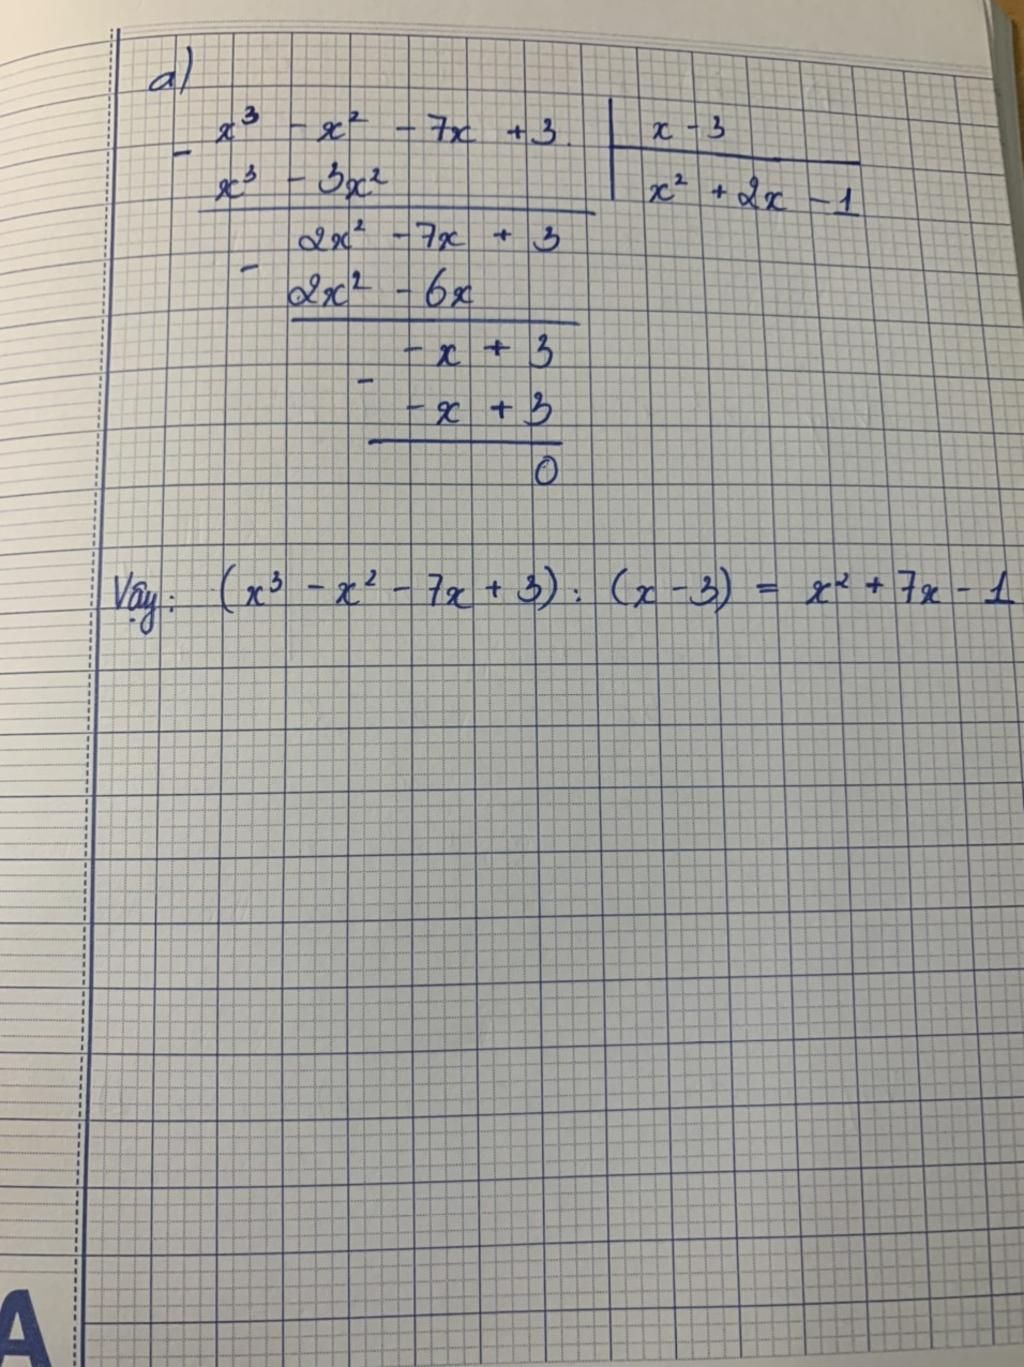 a)
x³ - x² - 7x + 3 | x - 3
- x³ - 3x² | x² + 2x - 1
2x² - 7x + 3
- 2x² - 6x
- x + 3
- - x + 3
0
Vậy: (x³ - x² - 7x + 3) : (x - 3) = x² + 7x - 1
A